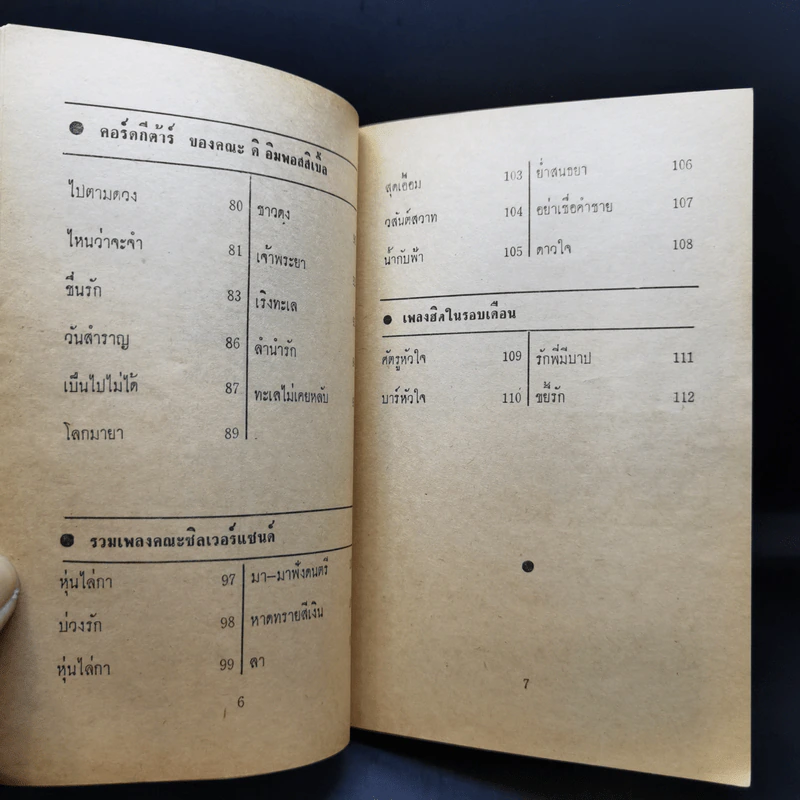 คอร์ดกีต้าร์ ของคณะ ดิ อิมพอสสิเบิ้ล
ไปตามดวง 80 ชาวดง
ไหนว่าจะจำ 81 เจ้าพระยา
ชื่นรัก 83 เริงทะเล
วันสำราญ 86 ลำนำรัก
เป็นไปไม่ได้ 87 ทะเลไม่เคยหลับ
โลกมายา 89
รวมเพลงคณะซิลเวอร์แซนด์
หุ่นไล่กา 97 มา-มาฟังดนตรี
บ่วงรัก 98 หาดทรายสีเงิน
หุ่นไล่กา 99 ลา
6
สุดเอื้อม 103 ย่ำสนธยา 106
วสันต์สวาท 104 อย่าเชื่อคำชาย 107
น้ำกับฟ้า 105 ดาวใจ 108
เพลงฮิตในรอบเดือน
ศัตรูหัวใจ 109 รักพี่มีบาป 111
บาร์หัวใจ 110 ขยี้รัก 112
7